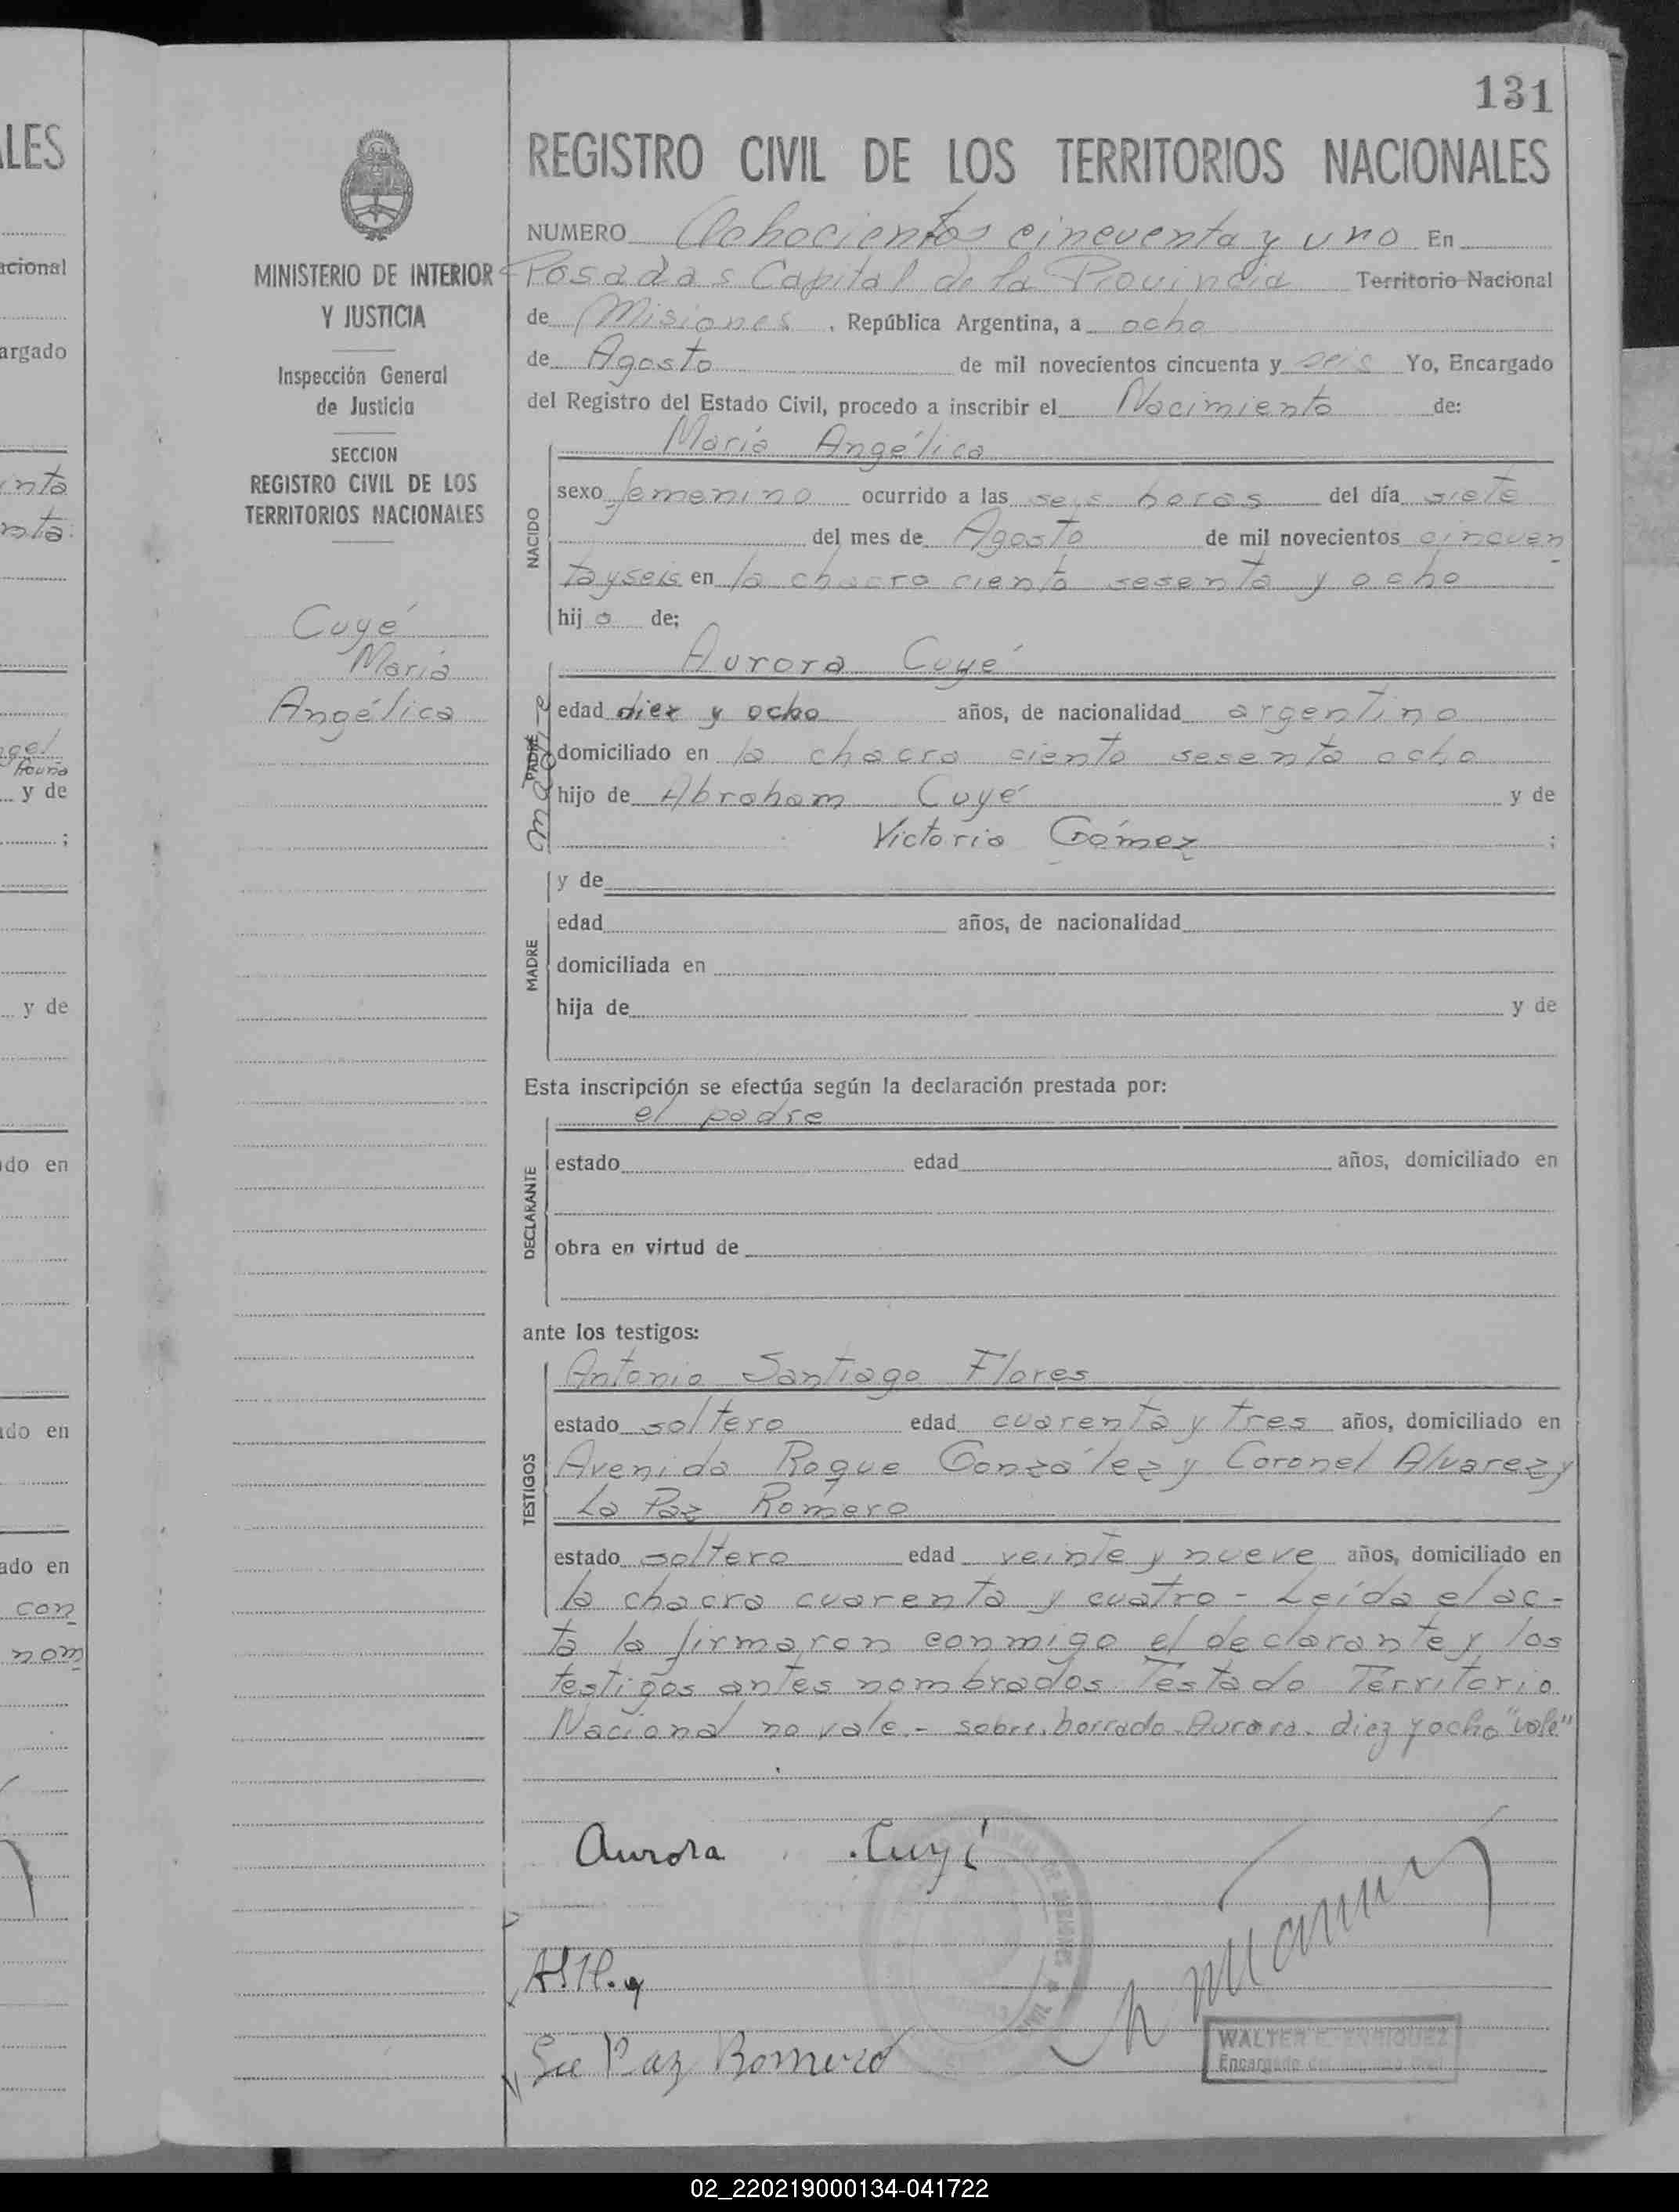 131
REGISTRO CIVIL DE LOS TERRITORIOS NACIONALES
MINISTERIO DE INTERIOR
Y JUSTICIA
Inspección General
de Justicia
SECCION
REGISTRO CIVIL DE LOS
TERRITORIOS NACIONALES
Cuyé
María
Angélica
NUMERO Ochocientos cincuenta y uno En
Posadas Capital de la Provincia Territorio Nacional
de Misiones, República Argentina, a ocho
de Agosto de mil novecientos cincuenta y seis Yo, Encargado
del Registro del Estado Civil, procedo a inscribir el Nacimiento de:
María Angélica
NACIDO
sexo femenino ocurrido a las seis horas del día siete
del mes de Agosto de mil novecientos cincuen
ta y seis en la chacra ciento sesenta y ocho
hij a de;
Aurora Cuyé
PADRE madre
edad diez y ocho años, de nacionalidad argentino
domiciliado en la chacra ciento sesenta ocho
hijo de Abraham Cuyé y de
Victoria Gómez ;
y de
MADRE
edad años, de nacionalidad
domiciliada en
hija de y de
Esta inscripción se efectúa según la declaración prestada por:
el padre
DECLARANTE
estado edad años, domiciliado en
obra en virtud de
ante los testigos:
Antonio Santiago Flores
TESTIGOS
estado soltero edad cuarenta y tres años, domiciliado en
Avenida Roque González y Coronel Alvarez y
La Paz Romero
estado soltero edad veinte y nueve años, domiciliado en
la chacra cuarenta y cuatro - Leída el ac-
ta la firmaron conmigo el declarante y los
testigos antes nombrados. Testado Territorio
Nacional no vale.- sobre borrado. Aurora. diez y ocho "vale"
Aurora Cuyé
Paz Romero
WALTER E. ENRIQUEZ
Encargado del Registro Civil
LES
acional
argado
y de
;
y de
do en
do en
ado en
con
nom
02_220219000134-041722